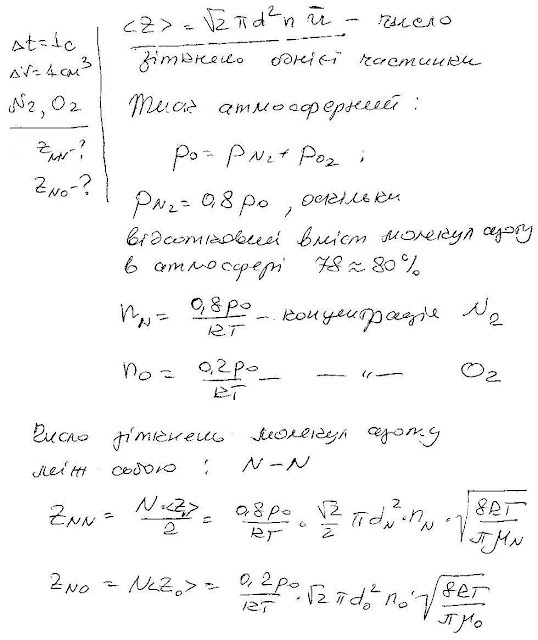 Δt=1c
ΔV=1см³
N₂, O₂
Z_NN-?
Z_NO-?
<Z> = √2 π d² n ū – число
зіткнень однієї частинки
Тиск атмосферний:
p₀ = p_N₂ + p_O₂ ;
p_N₂ = 0,8p₀, оскільки
відсотковий вміст молекул азоту
в атмосфері 78≈80%
n_N = 0,8p₀/kT – концентрація N₂
n_O = 0,2p₀/kT – — " — O₂
Число зіткнень молекул азоту
між собою : N–N
Z_NN = N·<Z₁>/2 = 0,8p₀/kT · √2/2 π d_N² · n_N · √(8RT/πμ_N)
Z_NO = N<Z₀> = 0,2p₀/kT · √2 π d₀² n₀ · √(8RT/πμ₀)